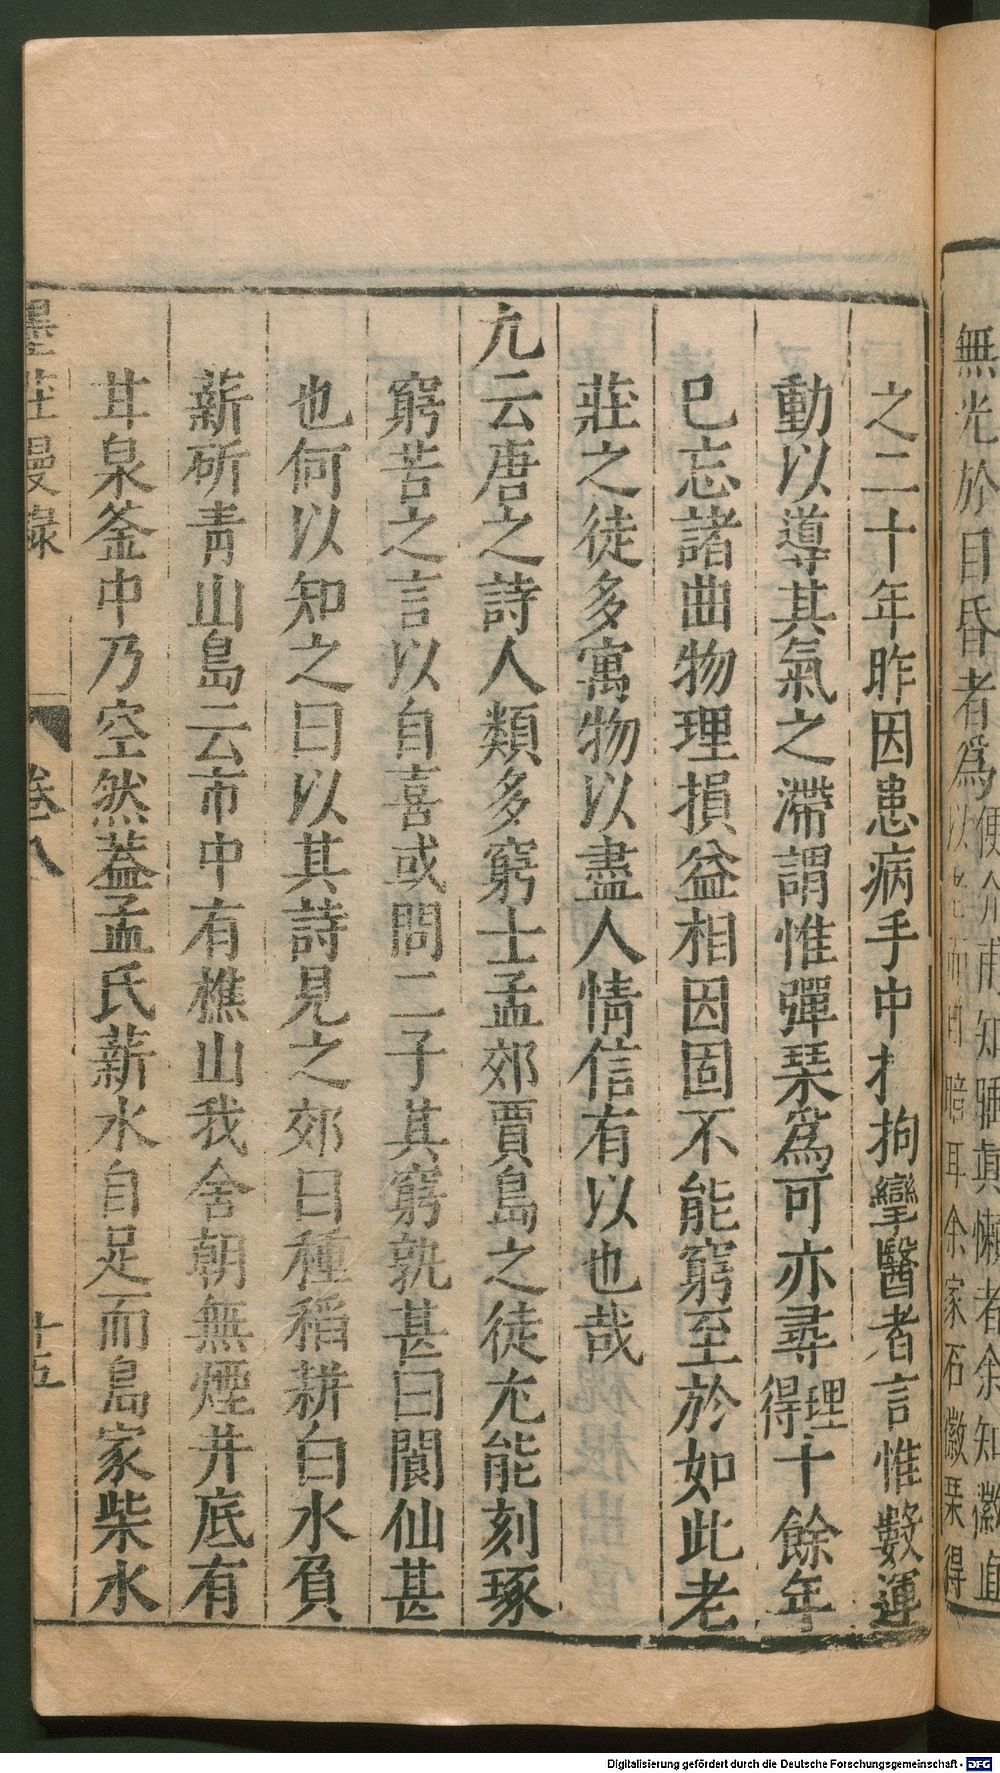 無光於目昏者爲
便介甫知
真懶者余知徽
以
耳余家石徽琹得
之二十年昨因患病手中扌拘攣醫者言惟數運
動以導其氣之滯謂惟彈琹爲可亦尋理得十餘年
已忘諸曲物理損益相因固不能窮至於如此老
莊之徒多寓物以盡人情信有以也哉
九云唐之詩人類多窮士孟郊賈島之徒尤能刻琢
窮苦之言以自喜或問二子其窮孰甚曰閬仙甚
也何以知之曰以其詩見之郊曰種稻耕白水負
薪斫青山島云市中有樵山我舍朝無煙井底有
甘泉釜中乃空然蓋孟氏薪水自足而島家柴水
墨莊漫錄 卷八 廿五
Digitalisierung gefördert durch die Deutsche Forschungsgemeinschaft - DFG